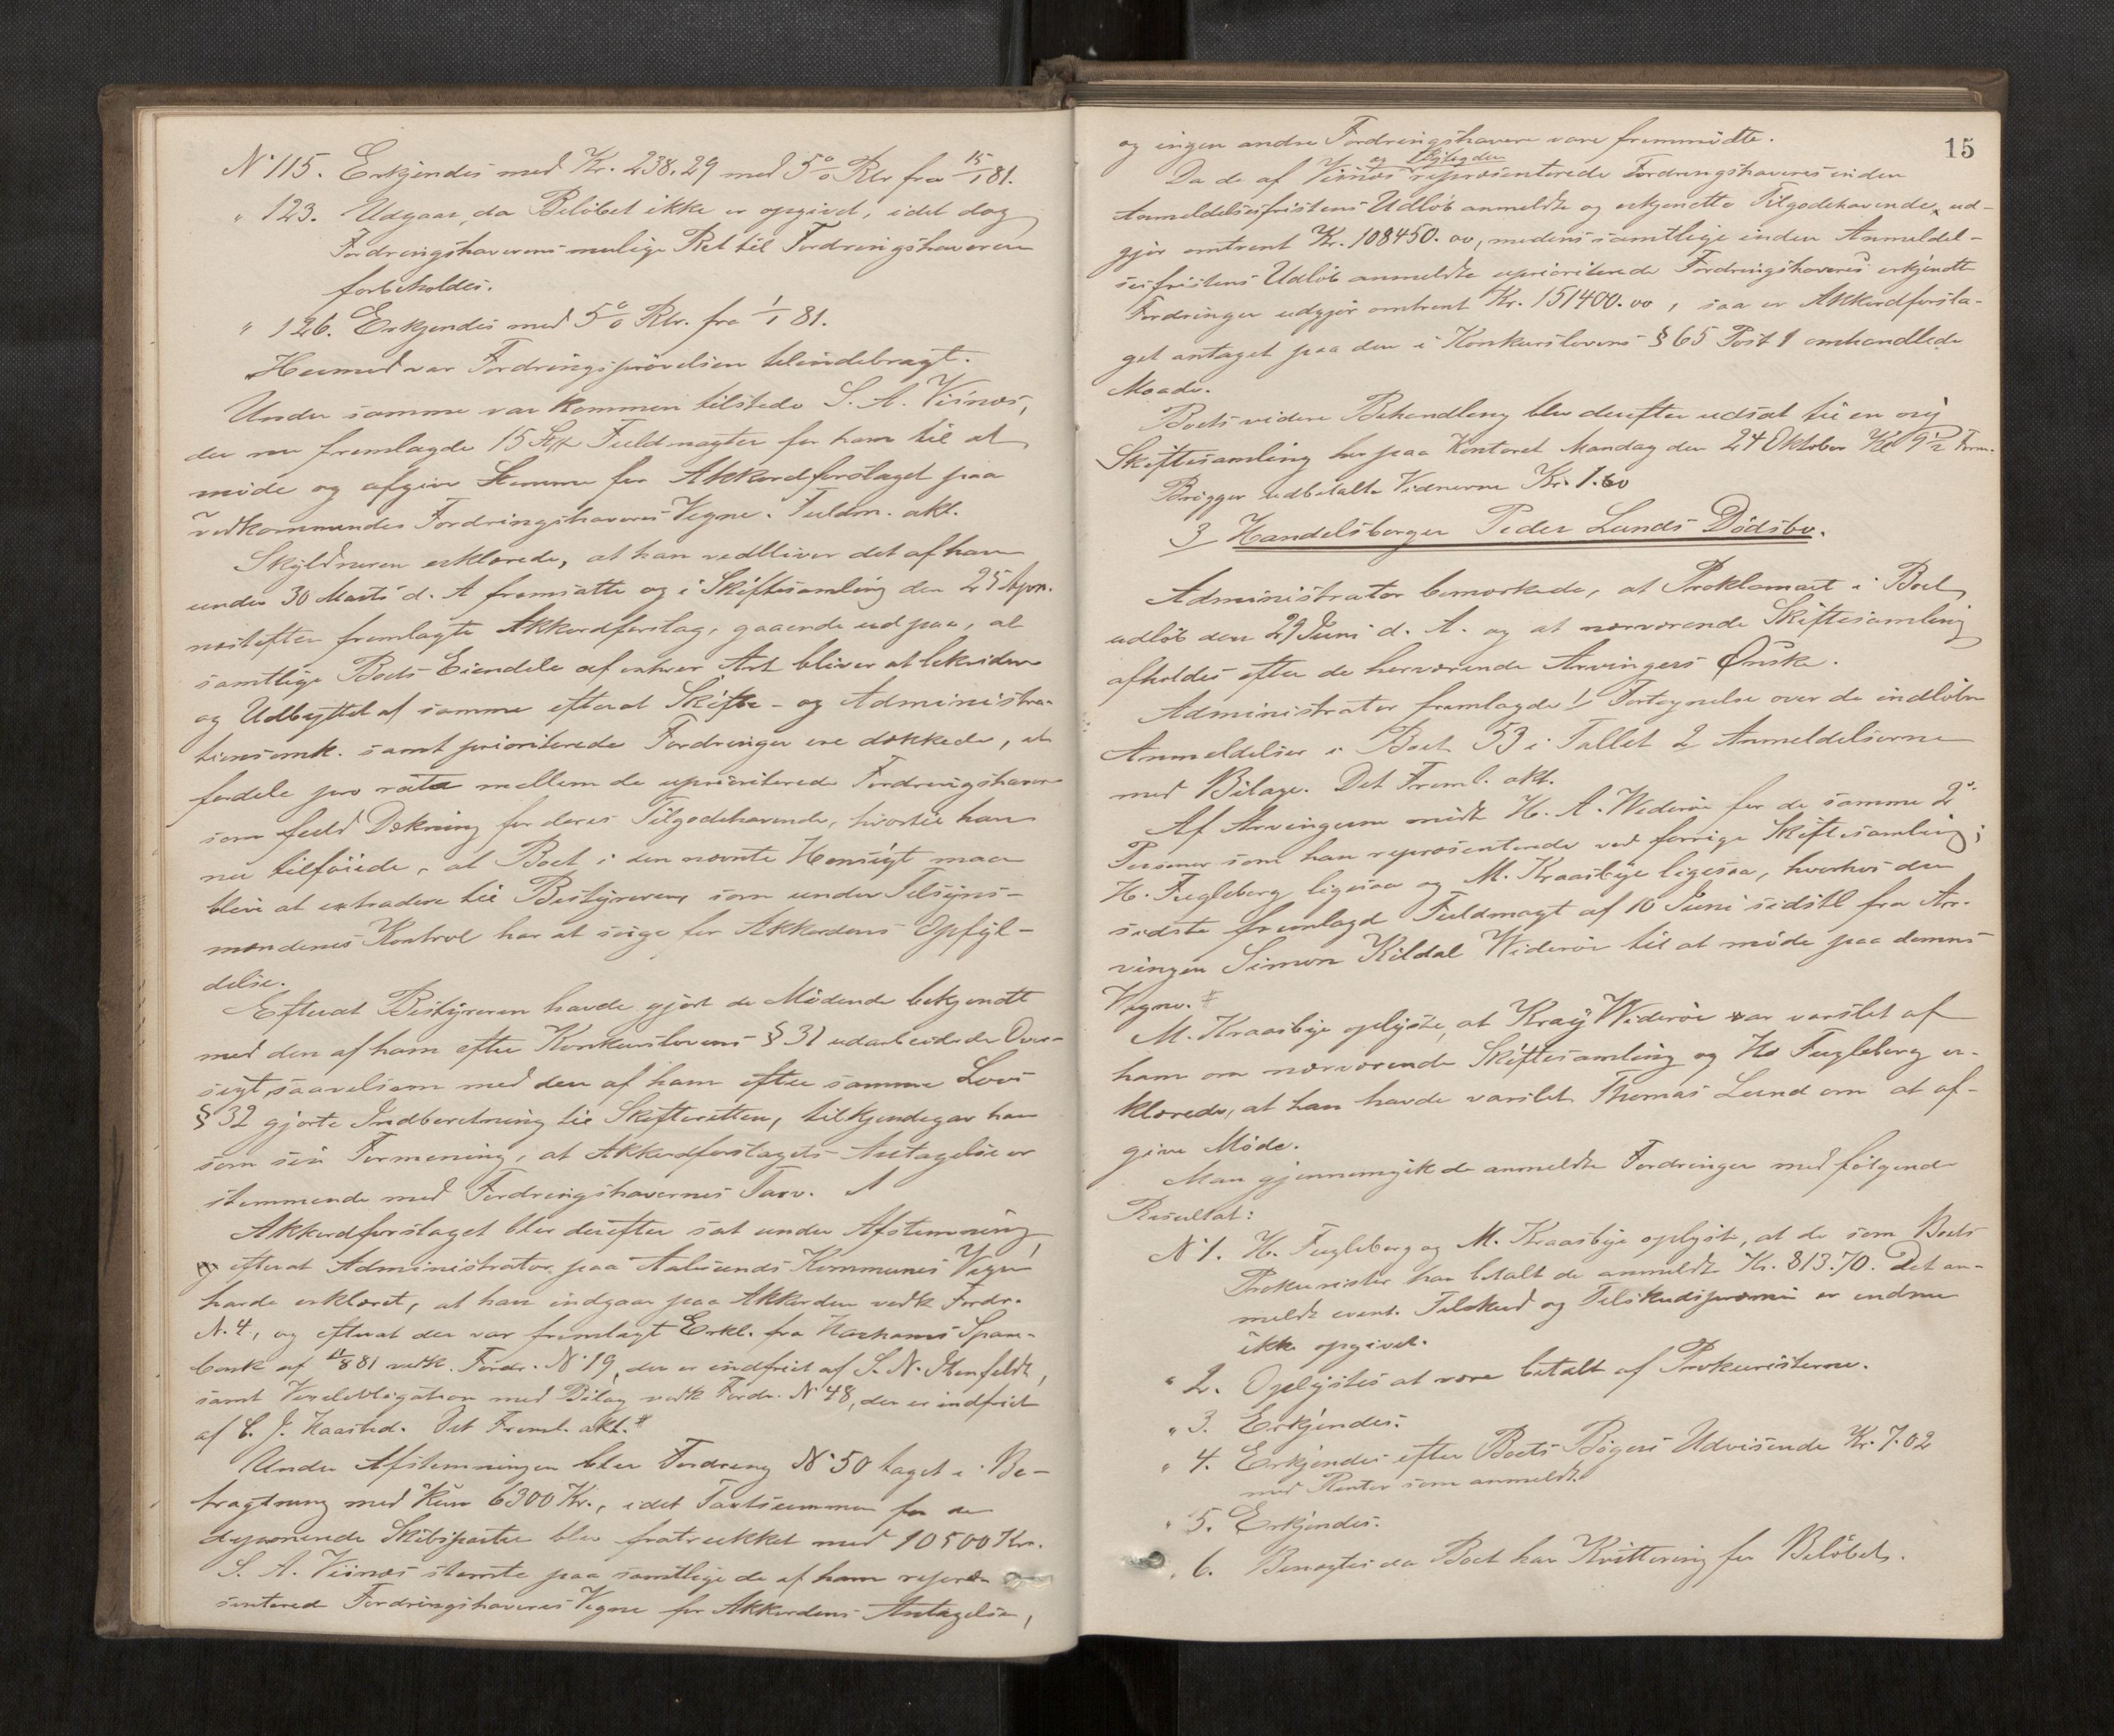 No 115. Erkjendes med Kr. 238.29 med 5 0/0 Rtr fra 15/1 81.
" 123. Udgaar, da Beløbet ikke er opgivet, idet dog
Fordringshaverens mulige Ret til Fordringshaveren
forbeholdes.
" 126. Erkjendes med 5 0/0 Rtr. fra 1/1 81.
Hermed var Fordringsprøvelsen tilendebragt.
Under samme var kommen tilstede S. A. Visnæs,
der nu fremlagde 15 Stk Fuldmagter for ham til at
møde og afgive Stemme for Akkordforslaget paa
vedkommendes Fordringshaveres Vegne. Fuldm. akt.
Skyldneren erklærede, at han vedbliver det af ham
under 30 Marts d. A fremsatte og i Skiftesamling den 25 Apr.
næstefter fremlagte Akkordforslag, gaaende ud paa, at
samtlige Boets Eiendele af enhver Art bliver at likvidere
og Udbyttet af samme efterat Skifte- og Administra-
tionsomk. samt prioriterede Fordringer ere dækkede, at
fordele pro rata mellem de uprioriterede Fordringshavere
som fuld Dækning for deres Tilgodehavende, hvortil han
nu tilføiede, at Boet i den nævnte Hensigt maa
blive at extradere til Bestyreren, som under Tilsyns-
mændenes Kontrol har at sørge for Akkordens Opfyl-
delse.
Efterat Bestyreren havde gjort de Mødende bekjendt
med den af ham efter Konkurslovens § 31 udarbeidede Over-
sigt, saavelsom med den af ham efter samme Lovs
§ 32 gjorte Indberetning til Skifteretten, tilkjendegav han
som sin Formening, at Akkordforslagets Antagelse er
stemmende med Fordringshavernes Tarv.
Akkordforslaget blev derefter sat under Afstemning,
og efterat Administrator paa Aalesunds Kommunes Vegne
havde erklæret, at han indgaar paa Akkorden vedk Fordr.
N. 4, og efterat der var fremlagt Erkl. fra Harhams Spare-
bank af 11/8 81 vedk. Fordr. No 19, der er indfriet af S. N.
samt Vexelobligation med Bilag vedk Fordr. No 48, der er indfriet
af C. J. Kaasted. Det Freml. akt. #
Under Afstemningen blev Fordring No 50 taget i Be-
tragtning med kun 6300 Kr., idet Taxtsummen for de
deponerede Skibsparter blev fratrukket med 10500 Kr.
S. A. Visnæs stemte paa samtlige de af ham repræ-
senterede Fordringshaveres Vegne for Akkordens Antagelse,
15
og ingen andre Fordringshavere vare fremmødte.
og
Da de af Visnæs repræsenterede Fordringshaveres inden
Anmeldelsesfristens Udløb anmeldte og erkjendte Tilgodehavende, ud-
gjør omtrent Kr. 108450.00, medens samtlige inden Anmeldel-
sesfristens Udløb anmeldte uprioriterede Fordringshaveres erkjendte
Fordringer udgjør omtrent Kr. 151400.00, saa er Akkordforsla-
get antaget paa den i Konkurslovens § 65 Post 1 omhandlede
Maade.
Boets videre Behandling blev derefter udsat til en ny
Skiftesamling her paa Kontoret Mandag den 24 Oktober Kl 9 1/2 Form.
Brøgger udbetalte Vidnerne Kr. 1.60
3 Handelsborger Peder Lunds Dødsbo.
Administrator bemærkede, at Proklamaet i Boet
udløb den 29 Juni d. A. og at nærværende Skiftesamling
afholdes efter de herværende Arvingers Ønske.
Administrator fremlagde 1/ Fortegnelse over de indløbne
Anmeldelser i Boet 53 i Tallet 2 Anmeldelserne
med Bilage. Det Freml. akt.
Af Arvingerne mødte H. A. Widerøe for de samme 2de
Personer som han repræsenterede ved forrige Skiftesamling;
H. Fugleberg ligesaa og M. Kraasbye ligesaa, hvorhos den
sidste fremlagde Fuldmagt af 10 Juni sidstl fra Ar-
vingen Simon Kildal Widerøe til at møde paa dennes
Vegne. #
M. Kraasbye oplyste, at Kraÿ Widerøe var varslet af
ham om nærværende Skiftesamling og Hs Fugleberg er-
klærede, at han havde varslet Thomas Lund om at af-
give Møde.
Man gjennemgik de anmeldte Fordringer med følgende
Resultat:
No 1. H. Fugleberg og M. Kraasbye oplyste, at de som Boets
Prokurister har betalt de anmeldte Kr. 813.70. Det an-
meldte event. Tilskud og Tilskudspræmie er endnu
ikke opgivet.
" 2. Oplystes at være betalt af Prokuristerne.
" 3. Erkjendes.
" 4. Erkjendes efter Boets Bøgers Udvisende Kr. 7.02
med Renter som anmeldt.
" 5. Erkjendes.
" 6. Benægtes da Boet har Kvittering for Beløbet.